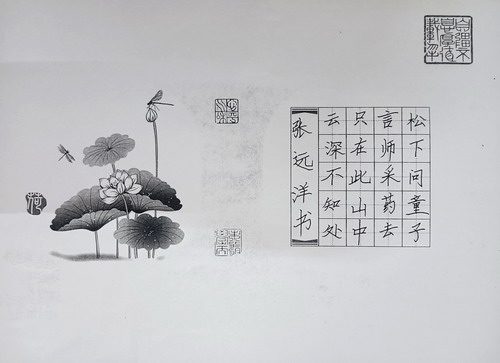 松下问童子
言师采药去
只在此山中
云深不知处
张远洋书